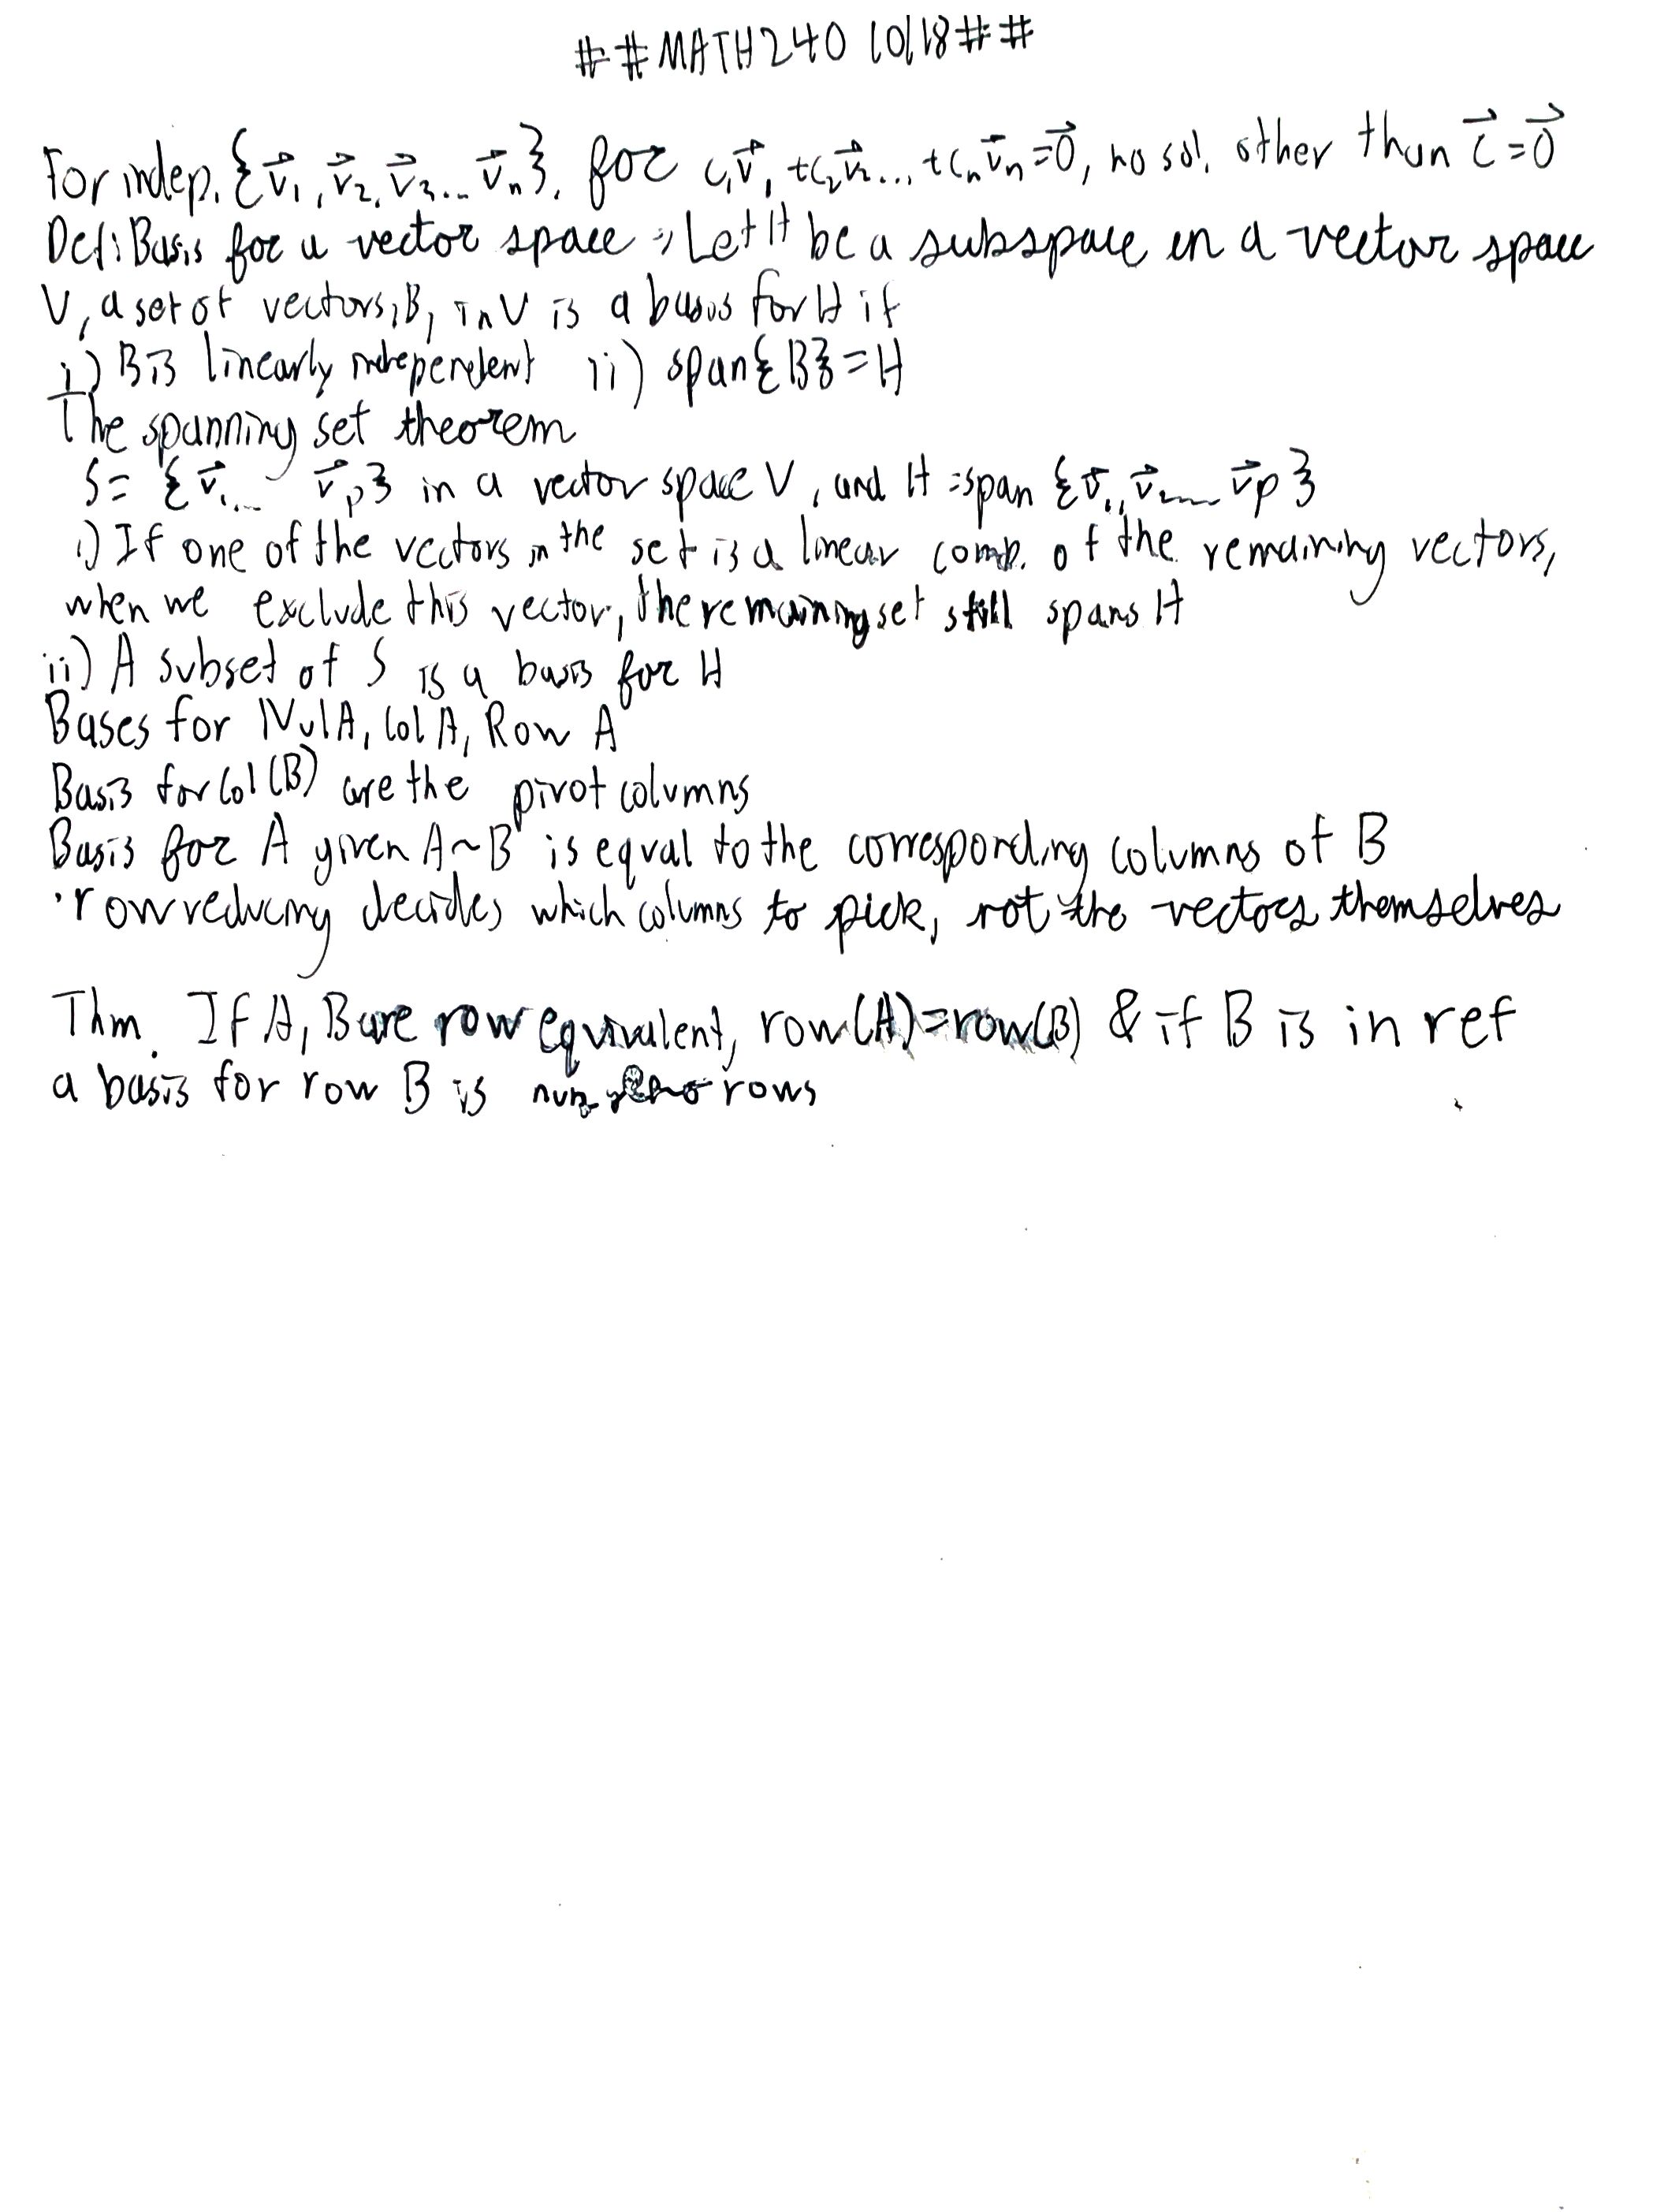 ##MATH240 10/18##
For indep. {v⃗₁, v⃗₂, v⃗₃... v⃗ₙ}, for c₁v⃗₁ +c₂v⃗₂... +cₙv⃗ₙ=0⃗, no sol. other than c⃗=0⃗
Def: Basis for a vector space → Let H be a subspace in a vector space
V, a set of vectors, B, in V is a basis for H if
i) B is linearly independent ii) span{B}=H
The spanning set theorem
S= {v⃗₁... v⃗p} in a vector space V, and H =span {v⃗₁, v⃗₂... v⃗p}
i) If one of the vectors in the set is a linear comb. of the remaining vectors,
when we exclude this vector, the remaining set still spans H
ii) A subset of S is a basis for H
Bases for Nul A, Col A, Row A
Basis for Col(B) are the pivot columns
Basis for A given A~B is equal to the corresponding columns of B
·row reducing decides which columns to pick, not the vectors themselves
Thm. If A, B are row equivalent, row(A)=row(B) & if B is in ref
a basis for row B is non-zero rows